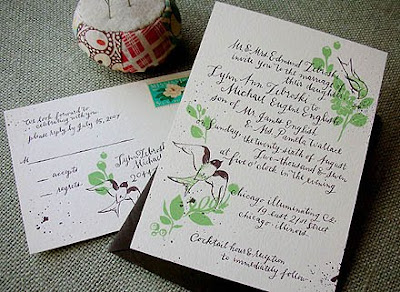 We look forward to
celebrating with you.
please reply by July 15, 2007
M
accepts
regrets
Lynn Zebroski
Michael
Mr & Mrs Edmund Zebroski
invite you to the marriage of
their daughter
Lynn Ann Zebroski
to
Michael Eugene English
son of Mr James English
& Ms Pamela Wallace
Sunday, the twenty-sixth of August
Two-thousand & seven
at five o'clock in the evening
Chicago Illuminating Co
19 east 21st Street
chicago illinois.
Cocktail hour & Reception
to immediately follow.